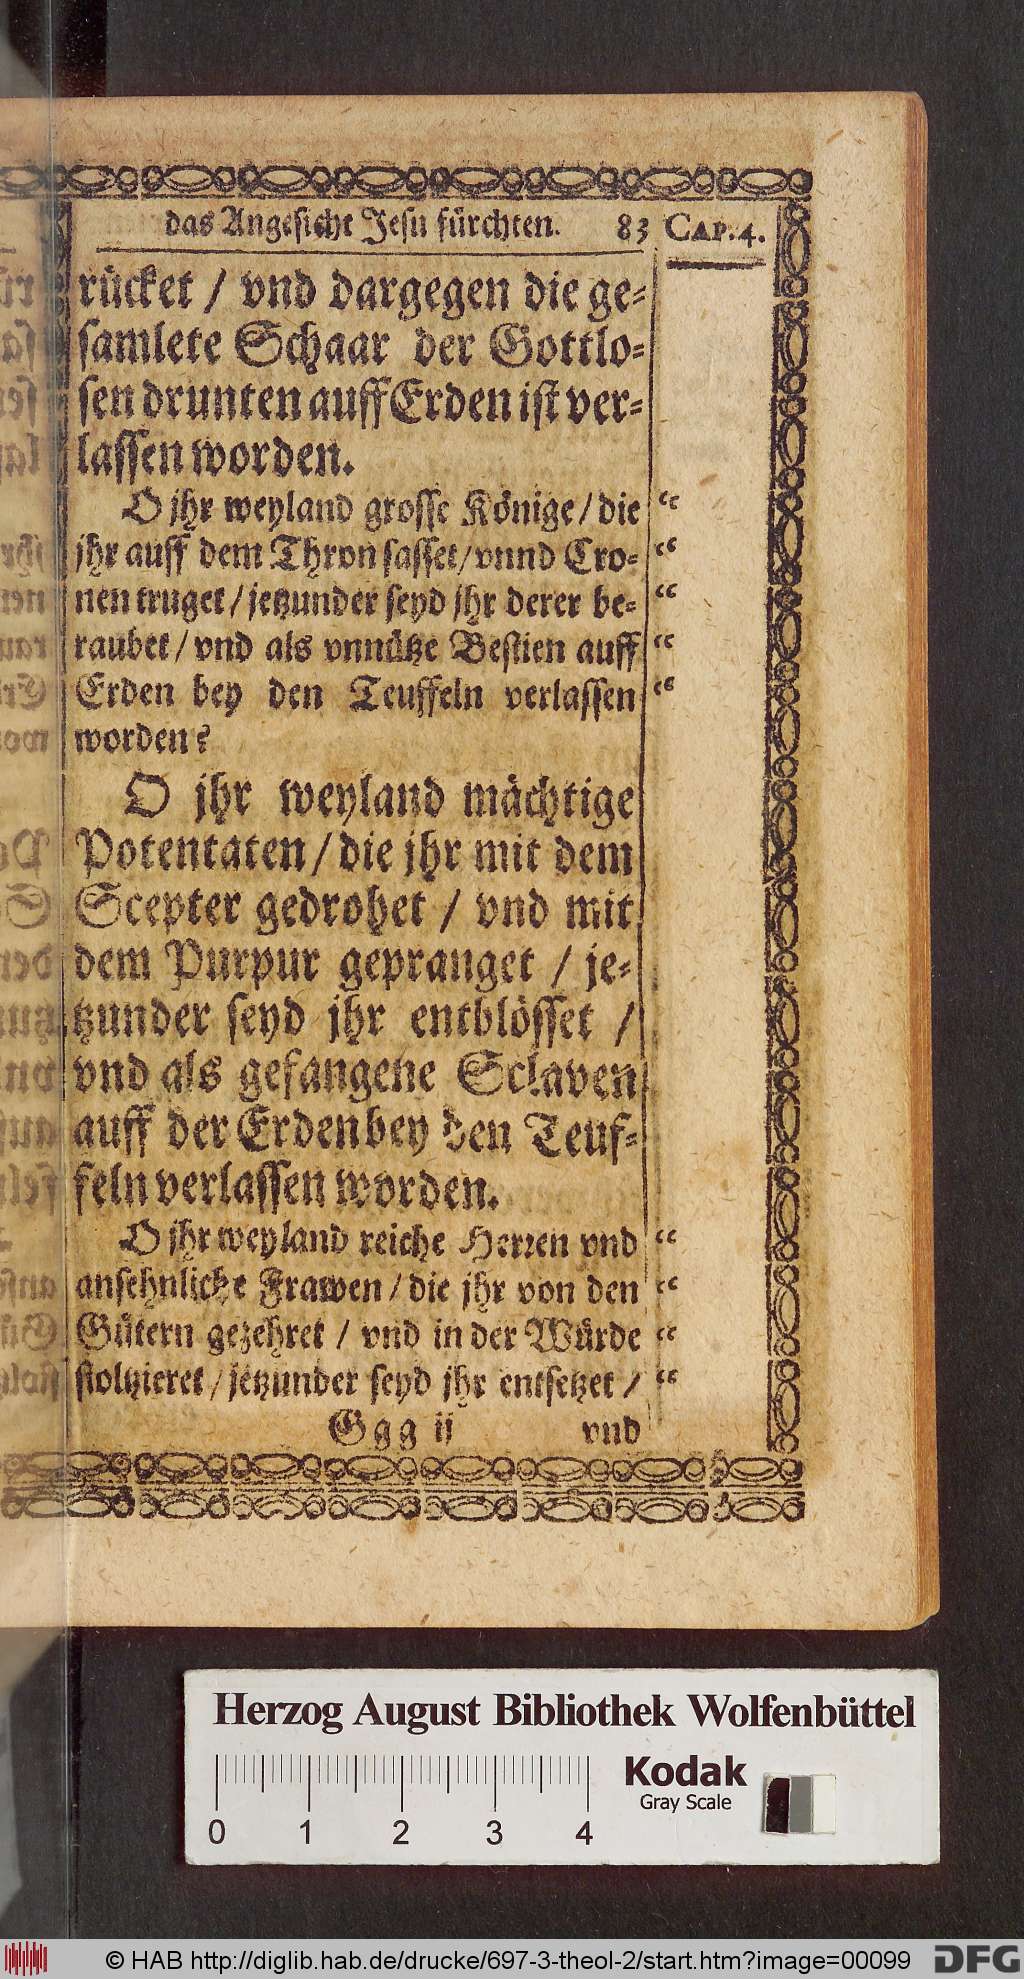 das Angesicht Jesu fürchten. 83 CAP. 4.
rücket / vnd dargegen die ge-
samlete Schaar der Gottlo-
sen drunten auff Erden ist ver-
lassen worden.
O jhr weyland grosse Könige / die “
jhr auff dem Thron sasset / vnnd Cro- “
nen truget / jetzunder seyd jhr derer be- “
raubet / vnd als vnnütze Bestien auff “
Erden bey den Teuffeln verlassen “
worden?
O jhr weyland mächtige
Potentaten / die jhr mit dem
Scepter gedrohet / vnd mit
dem Purpur gepranget / je-
tzunder seyd jhr entblösset /
vnd als gefangene Sclaven
auff der Erden bey den Teuf-
feln verlassen worden.
O jhr weyland reiche Herren vnd “
ansehnliche Frawen / die jhr von den “
Gütern gezehret / vnd in der Würde “
stoltzieret / jetzunder seyd jhr entsetzet / “
Ggg ij vnd
Herzog August Bibliothek Wolfenbüttel
Kodak
Gray Scale
0 1 2 3 4
© HAB http://diglib.hab.de/drucke/697-3-theol-2/start.htm?image=00099 DFG